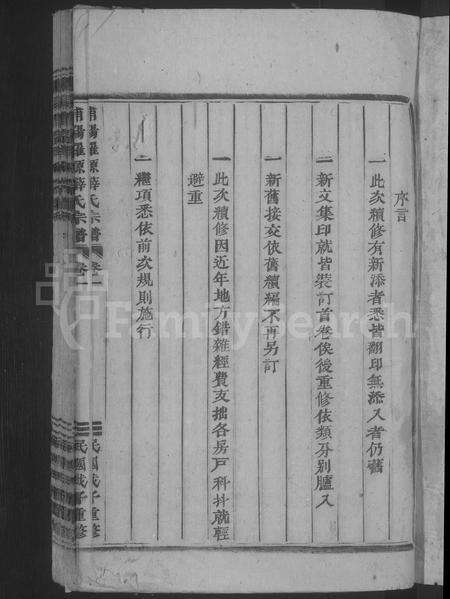 序言
一此次續修有新添者悉皆翻印無添入者仍舊
一新文集印就皆裝訂首卷俟後重修依類分別臚入
一新舊接交依舊續編不再另訂
一此次續修因近年地方錯雜經費支拙各房戶科抖就輕
避重
一繼項悉依前次規則施行
浦陽羅源薛氏宗譜 卷一 民國戊子重修
FamilySearch